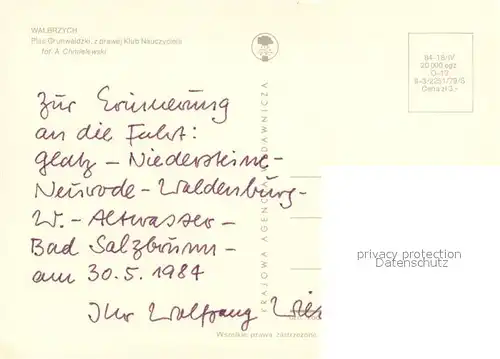 WAŁBRZYCH
Plac Grunwaldzki, z prawej Klub Nauczyciela
fot. A. Chmielewski
84-18/IV
20 000 egz.
Cena zł 3,-
KRAJOWA AGENCJA WYDAWNICZA
Zur Erinnerung
an die Fahrt:
Glatz – Niedersteine –
Neurode – Waldenburg –
W. – Altwasser –
Bad Salzbrunn –
am 30.5.1984
Ihr Wolfgang
Wszelkie prawa zastrzeżone
privacy protection
Datenschutz